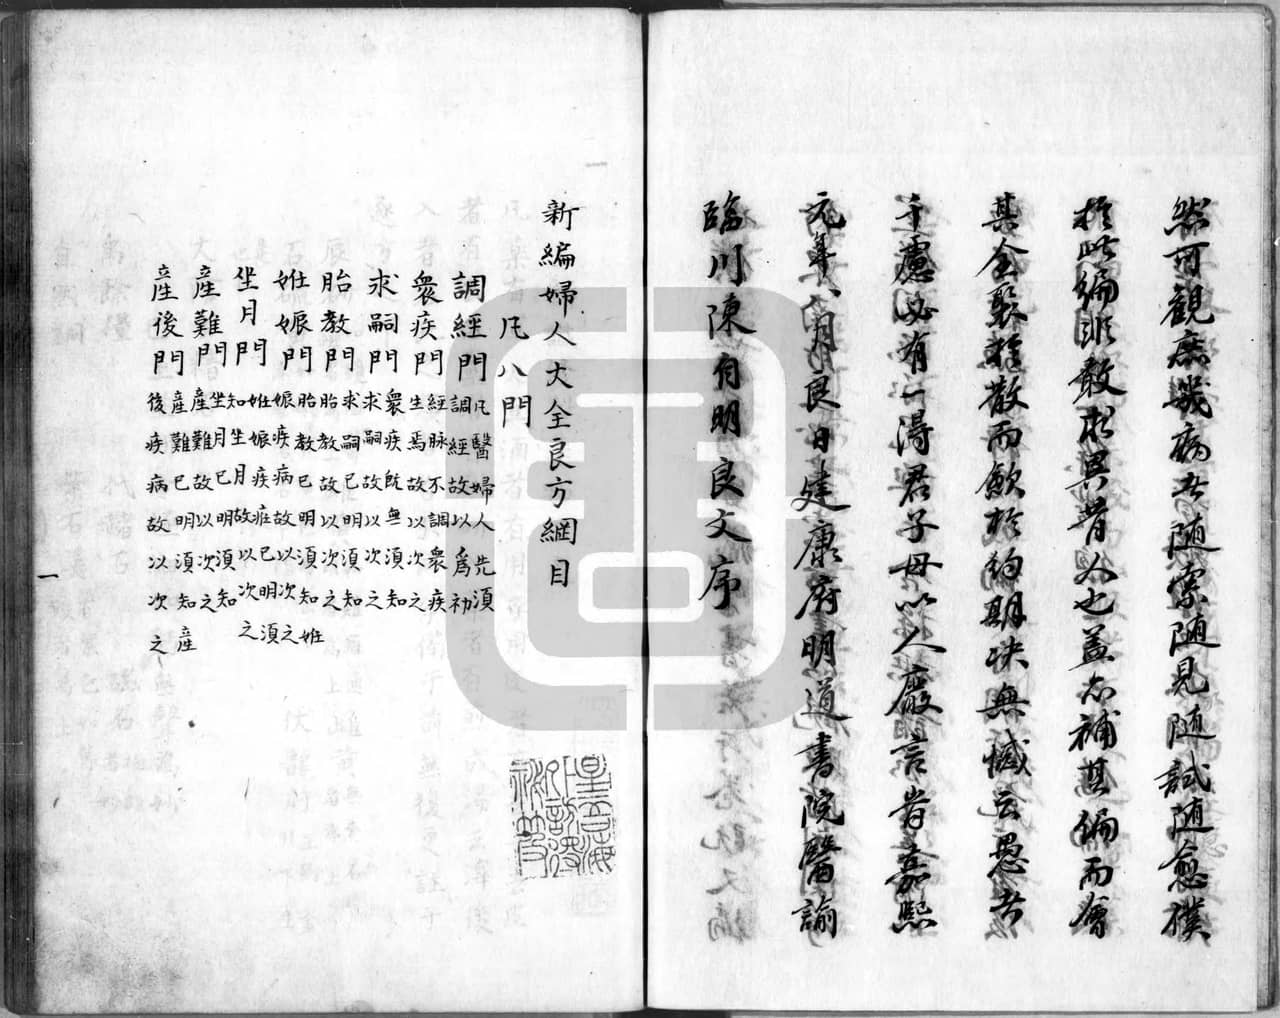 然可觀庶幾病者随索随見随試随愈僕
於此編非敢求異昔人也蓋亦補其偏而會
其全聚於散而歛於約期決無憾云愚者
千慮必有一得君子毋以人廢言旹嘉熙
元年八月良日建康府明道書院醫諭
臨川陳自明良文序
新編婦人大全良方綱目
凡八門
調經門 凡醫婦人先須調經故以為初
衆疾門 經脉不調衆疾生焉故以次之
求嗣門 衆疾既無須知求嗣故以次之
胎教門 求嗣已明須知胎教故以次之
姙娠門 胎教已明須知姙娠疾病故以次之
坐月門 姙娠疾症已明須知坐月故以次之
産難門 坐月已明須知産難故以次之
産後門 産難已明須知産後疾病故以次之
一